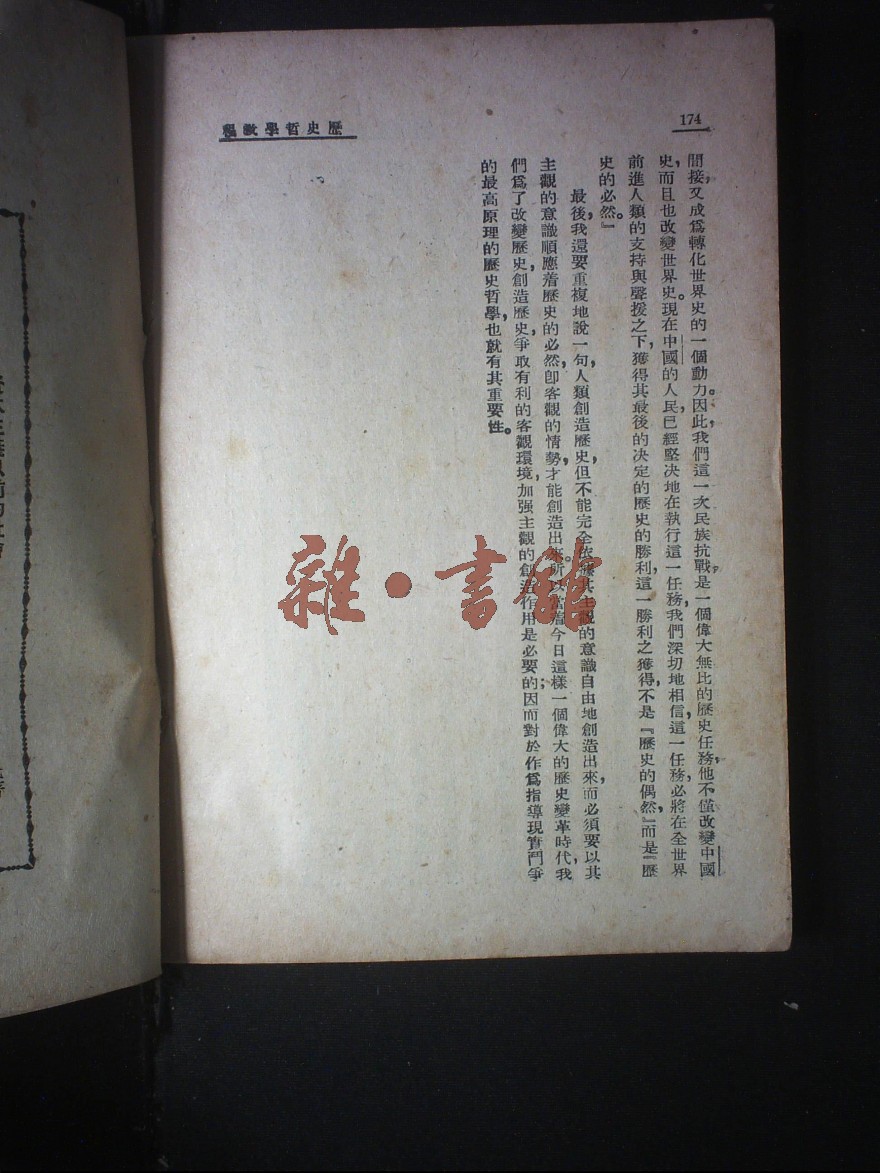 174
歷史哲學教程
間接,又成爲轉化世界史的一個動力。因此,我們這一次民族抗戰,是一個偉大無比的歷史任務,他不僅改變中國
史,而且也改變世界史。現在中國的人民,已經堅決地在執行這一任務,我們深切地相信,這一任務,必將在全世界
前進人類的支持與聲援之下,獲得其最後的決定的歷史的勝利,這一勝利之獲得,不是『歷史的偶然,』而是『歷
史的必然。』
最後,我還要重複地說一句,人類創造歷史,但不能完全依據其主觀的意識自由地創造出來,而必須要以其
主觀的意識順應着歷史的必然,即客觀的情勢,才能創造出來。所以當着今日這樣一個偉大的歷史變革時代,我
們爲了改變歷史,創造歷史,爭取有利的客觀環境,加强主觀的創造作用是必要的;因而對於作爲指導現實鬥爭
的最高原理的歷史哲學,也就有其重要性。
雜·書館